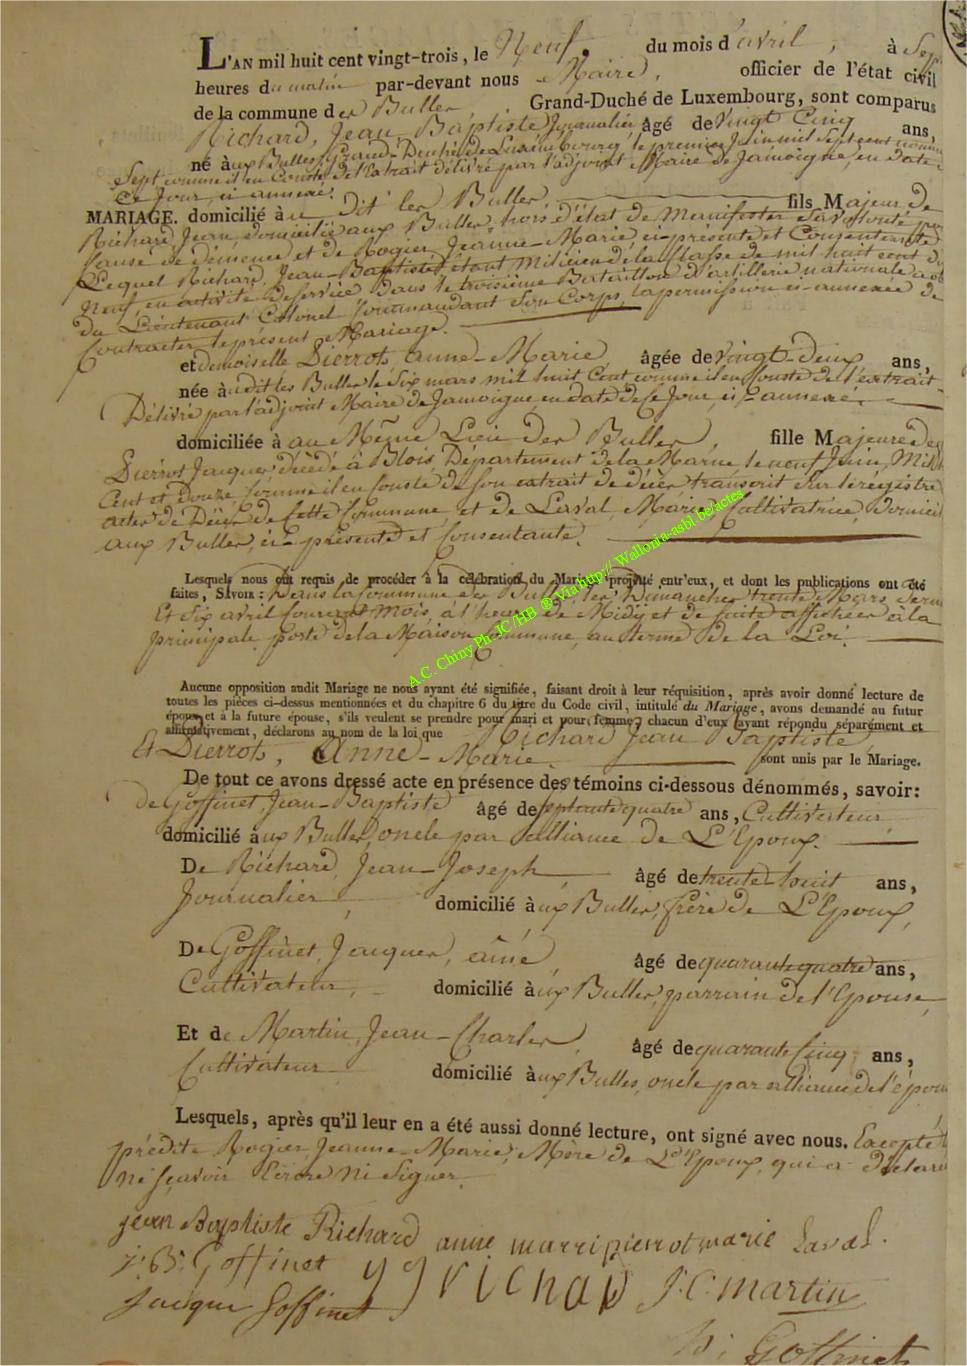 L'AN mil huit cent vingt-trois, le Neuf, du mois d'avril, à Sept
heures du matin par-devant nous Maire, officier de l'état civil
de la commune des Bulles, Grand-Duché de Luxembourg, sont comparus
Richard, Jean Baptiste Journalier âgé de Vingt Cinq ans,
né aux Bulles, Grand-Duché de Luxembourg, le premier Juin mil sept cent nonante
Sept, comme il en Conste de l'extrait délivré par l'adjoint Maire de Jamoigne, en date de
Ce Jour, ci annexé.
MARIAGE. domicilié au Dit les Bulles, fils Majeur de
Richard Jean, domicilié aux Bulles, hors d'état de Manifester Sa volonté pour
Cause de démence et de Rogier Jeanne-Marie ci-présente et Consentante
Lequel Richard, Jean-Baptiste, étant Milicien de la Classe de mil huit cent dix
Neuf, en activité de Service dans le troisième Bataillon d'artillerie nationale a
du Lieutenant Colonel Commandant Son Corps, la permission ci-annexée de
Contracter le présent Mariage.
et demoiselle Pierrot, anne-Marie, âgée de Vingt-deux ans,
née audit les Bulles le Six mars mil huit Cent comme il en Conste de l'extrait
Délivré par l'adjoint Maire de Jamoigne, en date de Ce Jour, ci annexé.
domiciliée à au Même Lieu des Bulles, fille Majeure de
Pierrot Jacques décédé à Blois, Département de la Marne, le neuf Juin, Mil huit
Cent et douze, comme il en Conste de son extrait de décès transcrit Sur le régistre
actes de Décès de Cette Commune et de Laval, Marie, Cultivatrice, domiciliée
aux Bulles, ci-présente et Consentante.
Lesquels nous ont requis de procéder à la célébration du Mariage projeté entr'eux, et dont les publications ont été
faites, SAVOIR : Dans la Commune des Bulles, les Dimanches trente Mars dernier
Et Six avril Courant Mois, à l'heure de Midy et de suite affichées à la
principale porte de la Maison Commune, au terme de la Loi.
A.C. Chiny Ph. JC/HB @ Via http:// Wallonia-asbl.be/actes
Aucune opposition audit Mariage ne nous ayant été signifiée, faisant droit à leur réquisition, après avoir donné lecture de
toutes les pièces ci-dessus mentionnées et du chapitre 6 du titre du Code civil, intitulé du Mariage, avons demandé au futur
époux et à la future épouse, s'ils veulent se prendre pour mari et pour femme; chacun d'eux ayant répondu séparément et
affirmativement, déclarons au nom de la loi que Richard Jean Baptiste,
Et Pierrot, Anne-Marie. sont unis par le Mariage.
De tout ce avons dressé acte en présence des témoins ci-dessous dénommés, savoir:
de Goffinet, Jean-Baptiste âgé de septante quatre ans, Cultivateur
domicilié aux Bulles, oncle par alliance de L'Epoux.
De Richard, Jean-Joseph, âgé de trente-huit ans,
Journalier, domicilié aux Bulles, frère de L'Epoux,
De Goffinet, Jacques, aîné, âgé de quarante quatre ans,
Cultivateur, domicilié aux Bulles, parrain de l'Epouse,
Et de Martin, Jean-Charles, âgé de quarante Cinq ans,
Cultivateur domicilié aux Bulles, oncle par alliance de l'épouse
Lesquels, après qu'il leur en a été aussi donné lecture, ont signé avec nous. Excepté la
prédite Rogier, Jeanne-Marie, Mère de L'Epoux, qui a déclaré
ni sçavoir Ecrire ni Signer.
jean Baptiste Richard anne marri pierrot marie Laval.
j. B. Goffinet J J richard J. C. martin
jacque Goffinet
Goffinet